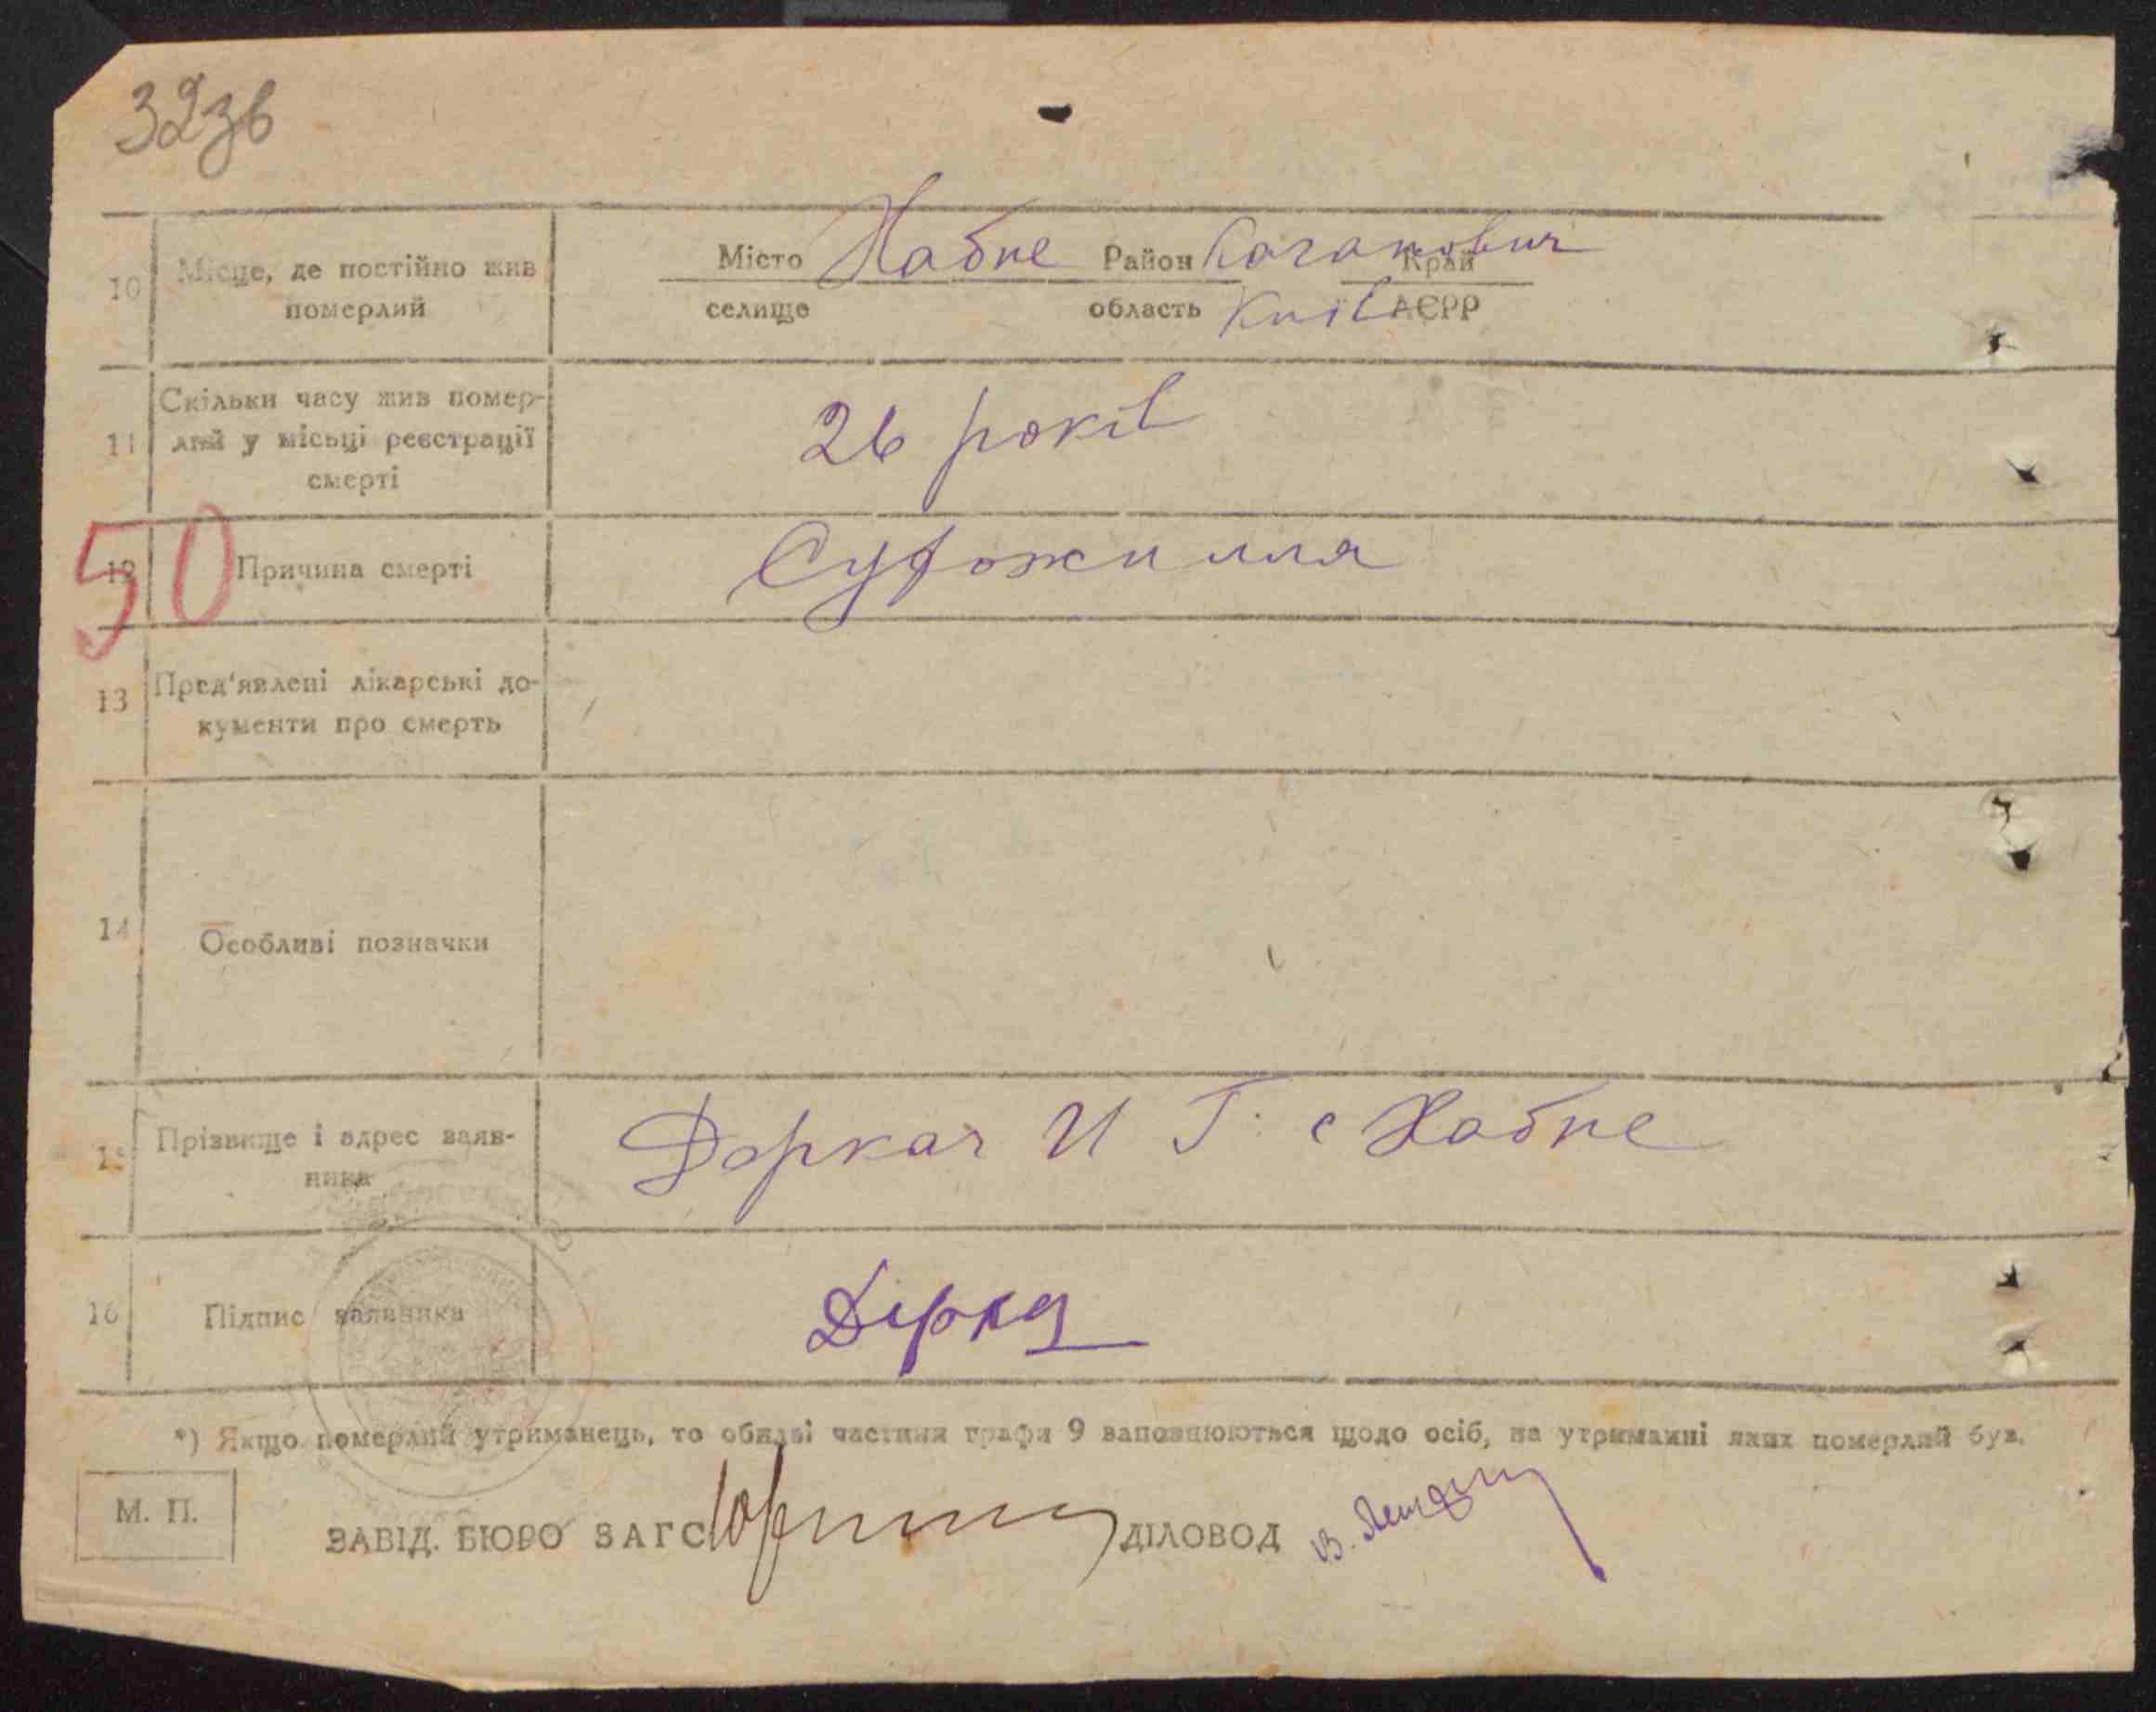 32зв
10 Місце, де постійно жив померлий
Місто Хабне Район Каганович Край
селище область Київ АСРР
11 Скільки часу жив помер-
лий у місьці реєстрації
смерті
26 років
50
12 Причина смерті
Сухожилля
13 Пред'явлені лікарські до-
кументи про смерть
14 Особливі позначки
15 Прізвище і адрес заяв-
ника
Деркач И Г. с Хабне
16 Підпис заявника
Деркач
*) Якщо померлий утриманець, то обидві частини графи 9 заповнюються щодо осіб, на утриманні яких померлий був.
М. П.
ЗАВІД. БЮРО ЗАГС ДІЛОВОД